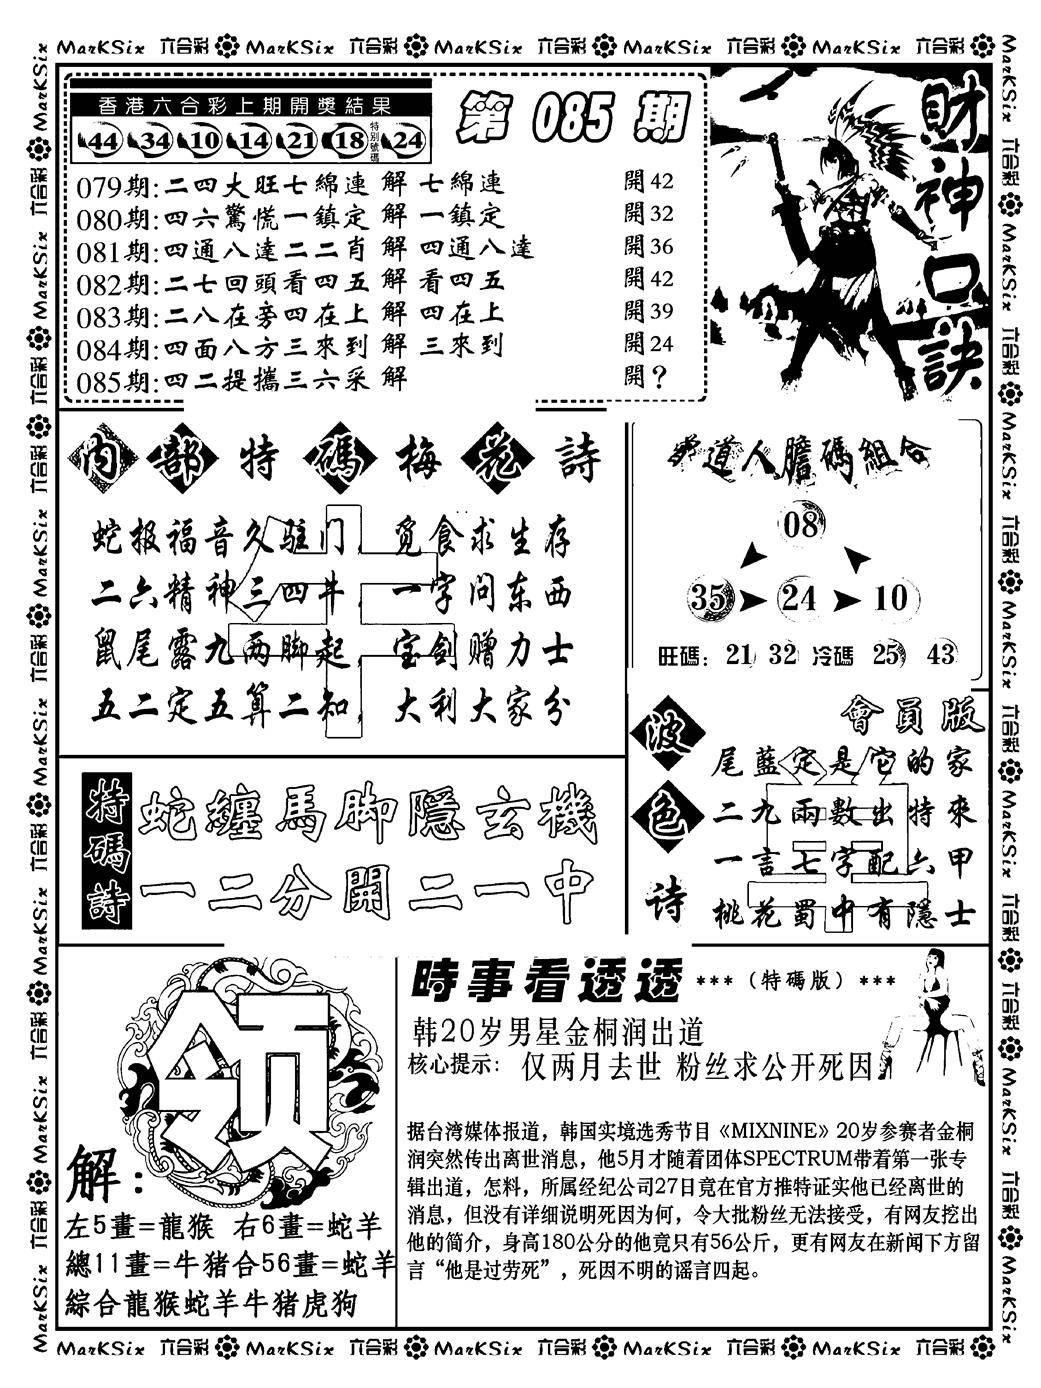 MarKSix 六合彩 MarKSix 六合彩 MarKSix 六合彩 MarKSix 六合彩 MarKSix 六合彩
香港六合彩上期開獎結果
44 34 10 14 21 18 特別號碼 24
第 085 期
079期:二四大旺七綿連 解 七綿連 開42
080期:四六驚慌一鎮定 解 一鎮定 開32
081期:四通八達二二肖 解 四通八達 開36
082期:二七回頭看四五 解 看四五 開42
083期:二八在旁四在上 解 四在上 開39
084期:四面八方三來到 解 三來到 開24
085期:四二提攜三六采 解 開?
財神口訣
内部特碼梅花詩
蛇报福音久驻门, 觅食求生存
二六精神三四牛, 一字问东西
鼠尾露九两脚起, 宝剑赠力士
五二定五算二知, 大利大家分
牛
道人膽碼組合
08
35 24 10
旺碼: 21 32 冷碼 25 43
波色诗
會員版
尾藍定是它的家
二九兩數出特來
一言七字配六甲
桃花蜀中有隱士
特碼詩
蛇纏馬脚隱玄機
一二分開二一中
领
解:
左5畫=龍猴 右6畫=蛇羊
總11畫=牛猪合56畫=蛇羊
綜合龍猴蛇羊牛猪虎狗
時事看透透 ***(特碼版)***
韩20岁男星金桐润出道
核心提示: 仅两月去世 粉丝求公开死因
据台湾媒体报道，韩国实境选秀节目《MIXNINE》20岁参赛者金桐
润突然传出离世消息，他5月才随着团体SPECTRUM带着第一张专
辑出道，怎料，所属经纪公司27日竟在官方推特证实他已经离世的
消息，但没有详细说明死因为何，令大批粉丝无法接受，有网友挖出
他的简介，身高180公分的他竟只有56公斤，更有网友在新闻下方留
言“他是过劳死”，死因不明的谣言四起。
MarKSix 六合彩 MarKSix 六合彩 MarKSix 六合彩 MarKSix 六合彩 MarKSix 六合彩